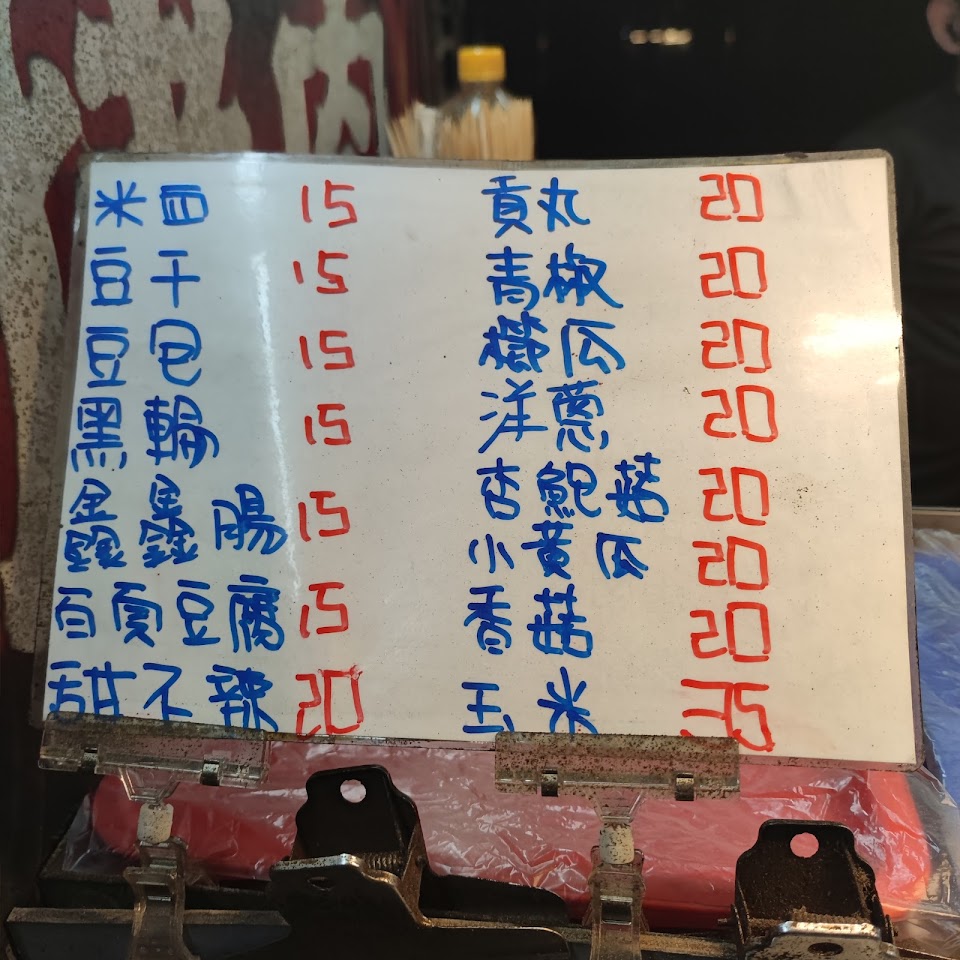 米血 15 貢丸 20
豆干 15 青椒 20
豆包 15 櫛瓜 20
黑輪 15 洋蔥 20
鑫鑫腸 15 杏鮑菇 20
百頁豆腐 15 小黃瓜 20
甜不辣 20 香菇 20
玉米